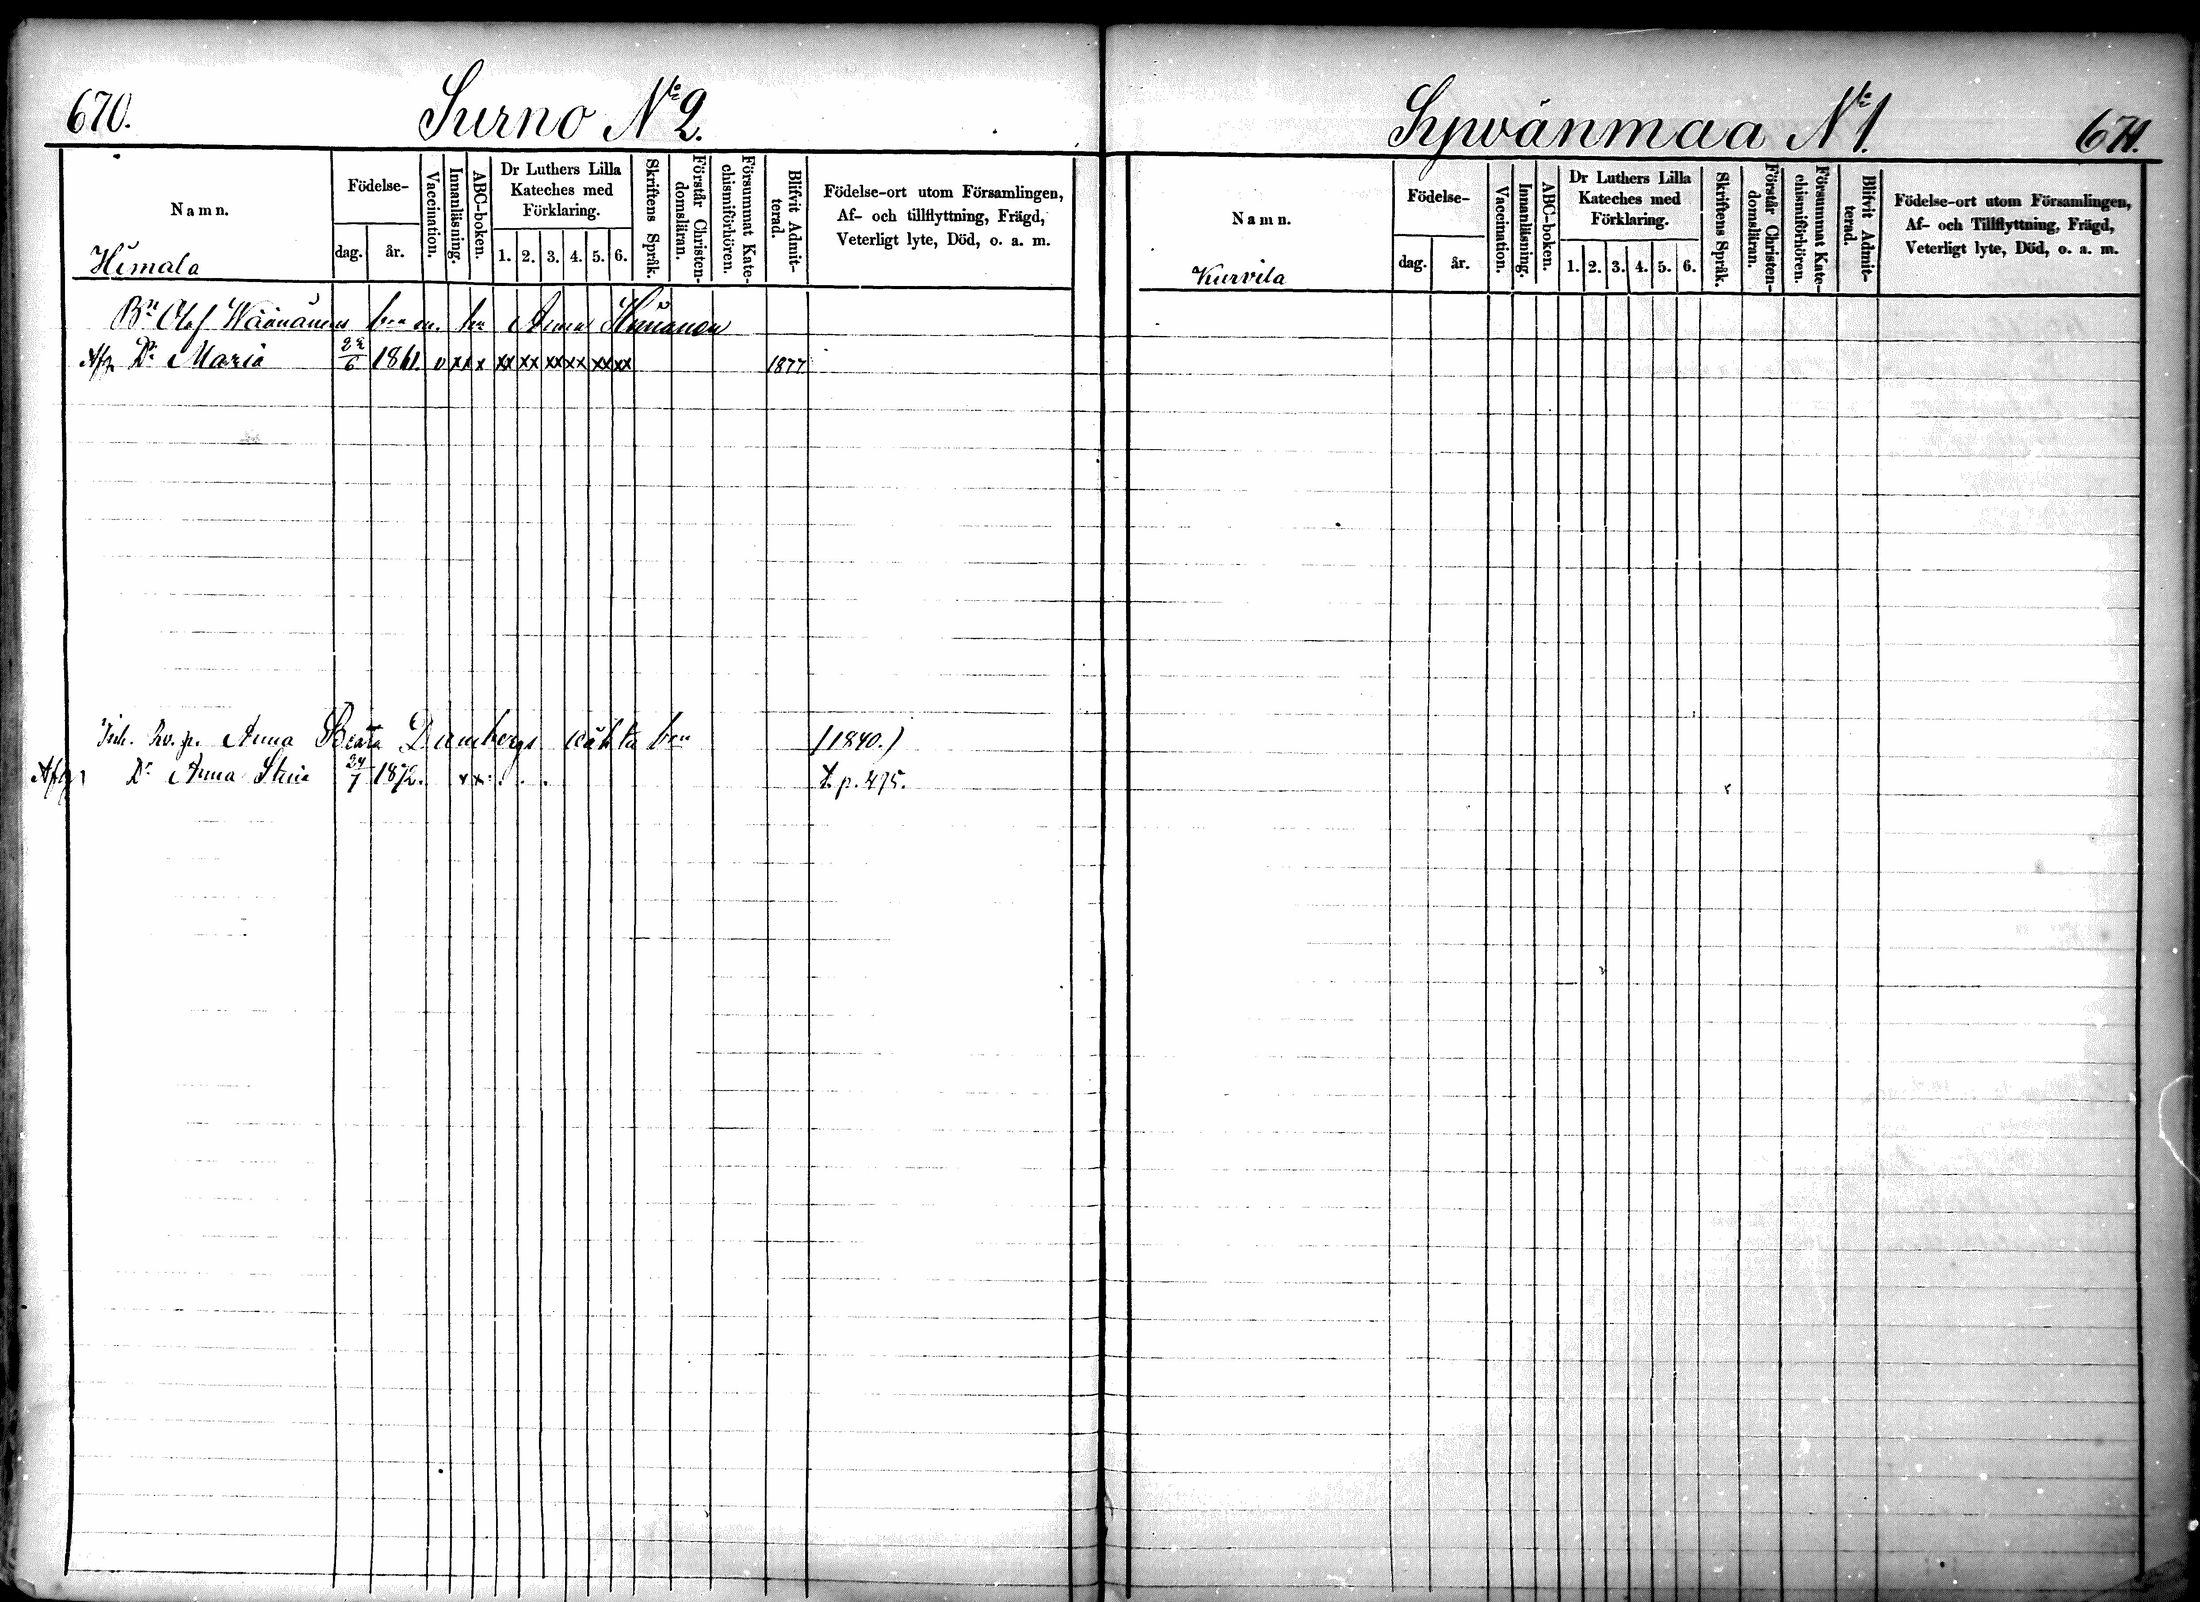 670.
Surno No 2.
Namn.
Födelse-
dag.
år.
Vaccination.
Innanläsning.
ABC-boken.
Dr Luthers Lilla
Kateches med
Förklaring.
1. 2. 3. 4. 5. 6.
Skriftens Språk.
Förstår Christen-
domsläran.
Försummat Kate-
chismiförhören.
Blifvit Admit-
terad.
Födelse-ort utom Församlingen,
Af- och tillflyttning, Frägd,
Veterligt lyte, Död, o. a. m.
Himala
Bn Olof Wäänänens Anna
Dr Maria 22/6 1861. v xx x xx xx xx xx xx xx 1877
Inh. Anna Beata (1840.)
Dr Anna Stina 24/7 1872. x x p. 475.
Sywänmaa No 1.
671.
Namn.
Födelse-
dag.
år.
Vaccination.
Innanläsning.
ABC-boken.
Dr Luthers Lilla
Kateches med
Förklaring.
1. 2. 3. 4. 5. 6.
Skriftens Språk.
Förstår Christen-
domsläran.
Försummat Kate-
chismiförhören.
Blifvit Admit-
terad.
Födelse-ort utom Församlingen,
Af- och Tillflyttning, Frägd,
Veterligt lyte, Död, o. a. m.
Kurvila